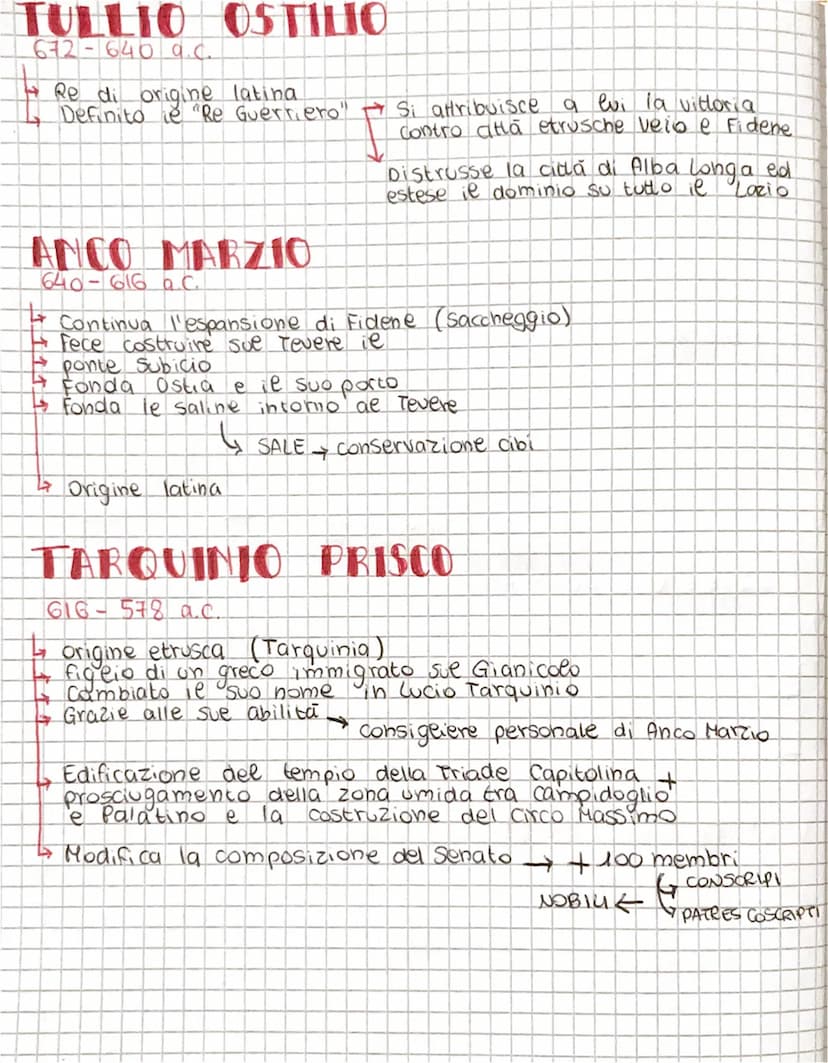 TULLIO OSTILIO
672 - 640 a.C.
Re di origine latina
Definito il "Re Guerriero"
Si attribuisce a lui la vittoria
contro città etrusche Veio e Fidene
Distrusse la città di Alba Longa ed
estese il dominio su tutto il Lazio
ANCO MARZIO
640 - 616 a.C.
Continua l'espansione di Fidene (saccheggio)
Fece costruire sul Tevere il
ponte Subicio
Fonda Ostia e il suo porto
Fonda le saline intorno al Tevere
SALE → conservazione cibi
Origine latina
TARQUINIO PRISCO
616 - 578 a.C.
origine etrusca (Tarquinia)
figlio di un greco immigrato sul Gianicolo
Cambiato il suo nome in Lucio Tarquinio
Grazie alle sue abilità →
consigliere personale di Anco Marzio
Edificazione del tempio della Triade Capitolina +
prosciugamento della zona umida tra Campidoglio
e Palatino e la costruzione del Circo Massimo
Modifica la composizione del Senato → + 100 membri
CONSCRIPI
NOBILI ←
PATRES COSCRIPTI